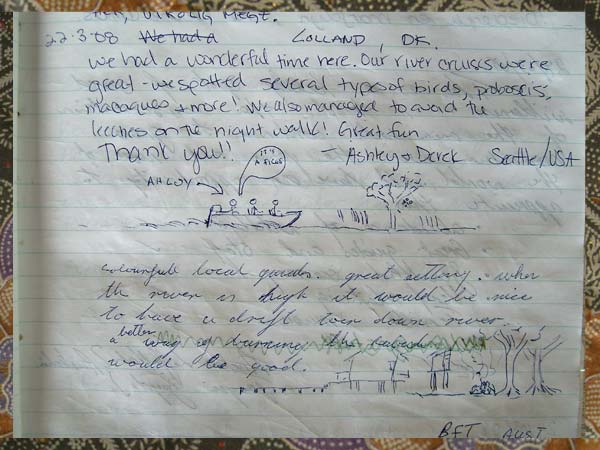 VIRKELIG MEGET.
22.3.08 We had a LOLLAND, DK.
we had a wonderful time here. Our river cruises were
great - we spotted several types of birds, proboscis,
macaques + more! We also managed to avoid the
leeches on the night walk! Great fun
Thank you!! - Ashley + Derek Seattle/USA
IT'S A
AHLOY
colourfull local guides. great setting. when
the river is high it would be nice
to have a drift down river.
a better way of burning the
would be good.
BFT AUST